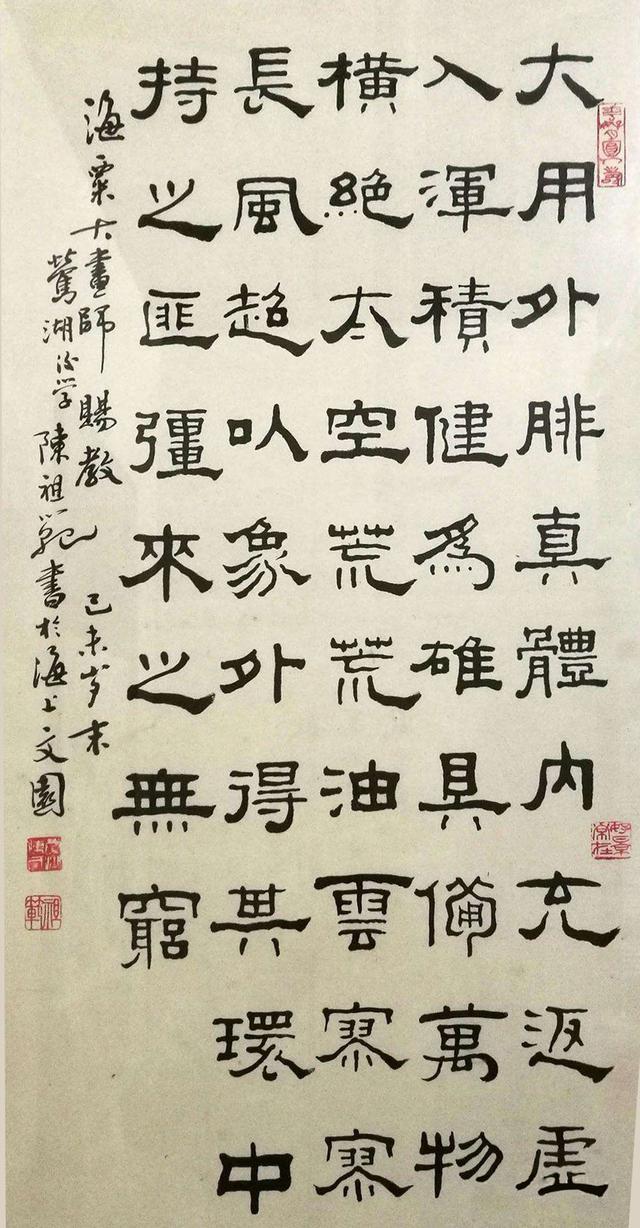 大用外腓真體內充返虛
入渾積健爲雄具備萬物
橫絕太空荒荒油雲寥寥
長風超以象外得其環中
持之匪彊來之無窮
海粟大畫師賜教 己未岁末
鶯湖後学陳祖範書於海上文園